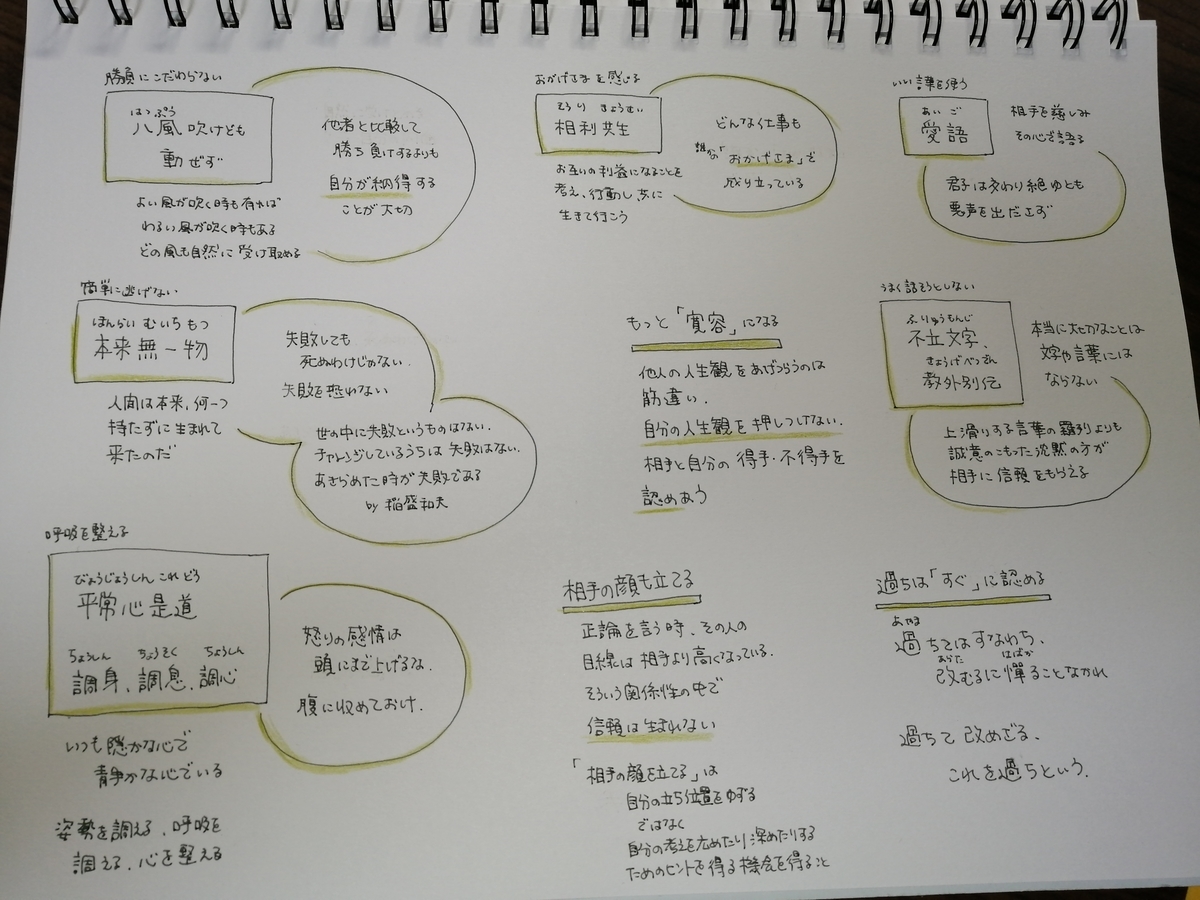 勝負にこだわらない
はっぷう
八風吹けども
動ぜず
よい風が吹く時も有れば
わるい風が吹く時もある
どの風も自然に受け取める
他者と比較して
勝ち負けするよりも
自分が納得する
ことが大切
おかげさまを感じる
そうり きょうせい
相利共生
お互いの利益になることを
考え、行動し共に
生きて行こう
どんな仕事も
誰かの「おかげさま」で
成り立っている
いい言葉を使う
あい ご
愛語
相手を慈しみ
その心で語る
君子は交わり絶ゆとも
悪声を出ださず
簡単に逃げない
ほんらい むいち もつ
本来無一物
人間は本来、何一つ
持たずに生まれて
来たのだ
失敗しても
死ぬわけじゃない。
失敗を恐れない
世の中に失敗というものはない。
チャレンジしているうちは失敗はない。
あきらめた時が失敗である
by 稲盛和夫
もっと「寛容」になる
他人の人生観をあげつらうのは
筋違い。
自分の人生観を押しつけない。
相手と自分の得手・不得手を
認めあう
うまく話そうとしない
ふりゅうもんじ
不立文字、
きょうげべつでん
教外別伝
本当に大切なことは
文字や言葉には
ならない
上滑りする言葉の羅列よりも
誠意のこもった沈黙の方が
相手に信頼をもらえる
呼吸を整える
びょうじょうしん これ どう
平常心是道
ちょうしん ちょうそく ちょうしん
調身、調息、調心
いつも穏かな心で
静かな心でいる
姿勢を調える、呼吸を
調える、心を整える
怒りの感情は
頭にまで上げるな。
腹に収めておけ。
相手の顔も立てる
正論を言う時、その人の
目線は相手より高くなっている。
そういう関係性の中で
信頼は生まれない
「相手の顔を立てる」は
自分の立ち位置をゆずる
ではなく
自分の考えを広めたり深めたりする
ためのヒントを得る機会を得ること
過ちは「すぐ」に認める
あやま
過ちてはすなわち、
あらた はばか
改むるに憚ることなかれ
過ちて改めざる、
これを過ちという。